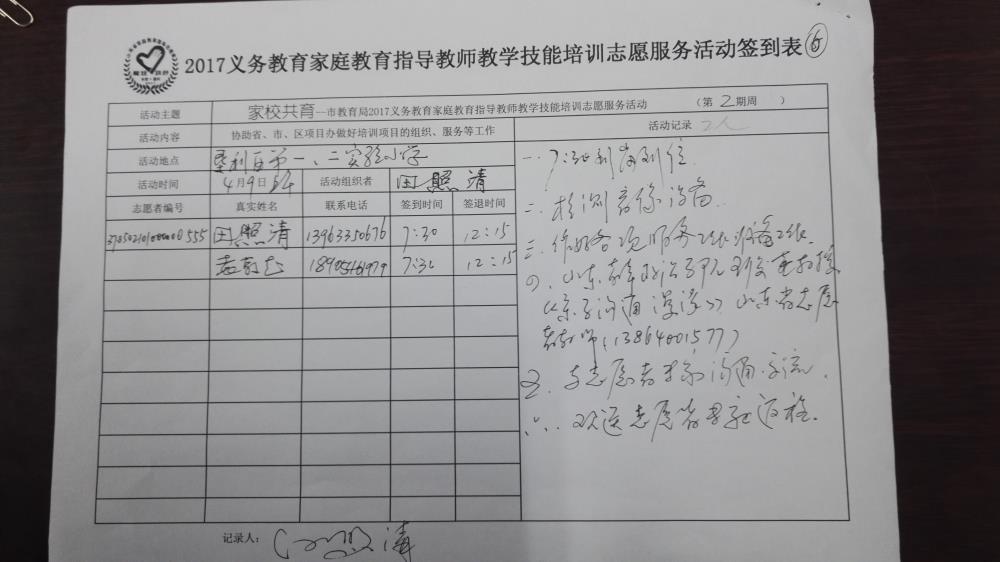 2017义务教育家庭教育指导教师教学技能培训志愿服务活动签到表 ⑤
活动主题 家校共育---市教育局2017义务教育家庭教育指导教师教学技能培训志愿服务活动 （第 2 期周 ）
活动内容 协助省、市、区项目办做好培训项目的组织、服务等工作 活动记录 2人
活动地点 垦利区第一、二实验小学
活动时间 4月9日 活动组织者 田照清
志愿者编号 真实姓名 联系电话 签到时间 签退时间
田照清 13963350676 7:30 12:15
7:30 12:15
一. 7:30 到岗到位.
二. 检测音像设备.
三. 作好各项服务工作准备工作.
四. 山东
《亲子沟通 》 山东省志愿
(13864001577)
五. 与志愿者 沟通.交流.
六. 欢送志愿者 返程.
记录人： 田照清